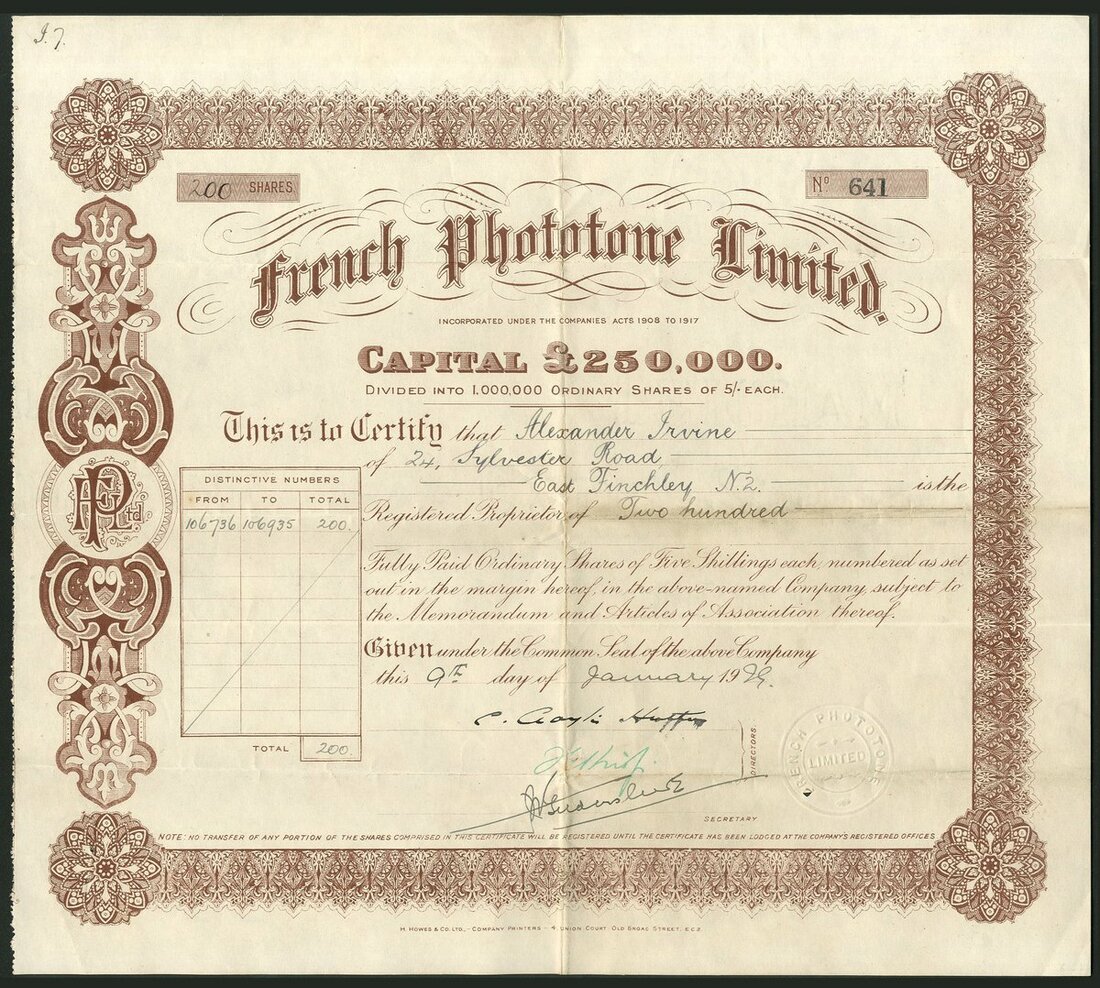 200 SHARES
Nº 641
French Phototone Limited.
INCORPORATED UNDER THE COMPANIES ACTS 1908 TO 1917
CAPITAL £250,000.
DIVIDED INTO 1,000,000 ORDINARY SHARES OF 5/- EACH.
This is to Certify that Alexander Irvine
of 24, Sylvester Road
East Finchley N.2. is the
Registered Proprietor of Two hundred
Fully Paid Ordinary Shares of Five Shillings each, numbered as set
out in the margin hereof, in the above-named Company, subject to
the Memorandum and Articles of Association thereof.
Given under the Common Seal of the above Company
this 9th day of January 1929.
DISTINCTIVE NUMBERS
FROM TO TOTAL
106736 106935 200
TOTAL 200.
FP Ltd.
DIRECTORS
SECRETARY
FRENCH PHOTOTONE
LIMITED
NOTE: NO TRANSFER OF ANY PORTION OF THE SHARES COMPRISED IN THIS CERTIFICATE WILL BE REGISTERED UNTIL THE CERTIFICATE HAS BEEN LODGED AT THE COMPANY'S REGISTERED OFFICES
H. HOWES & CO. LTD., - COMPANY PRINTERS - 4, UNION COURT OLD BROAD STREET, E.C.2.